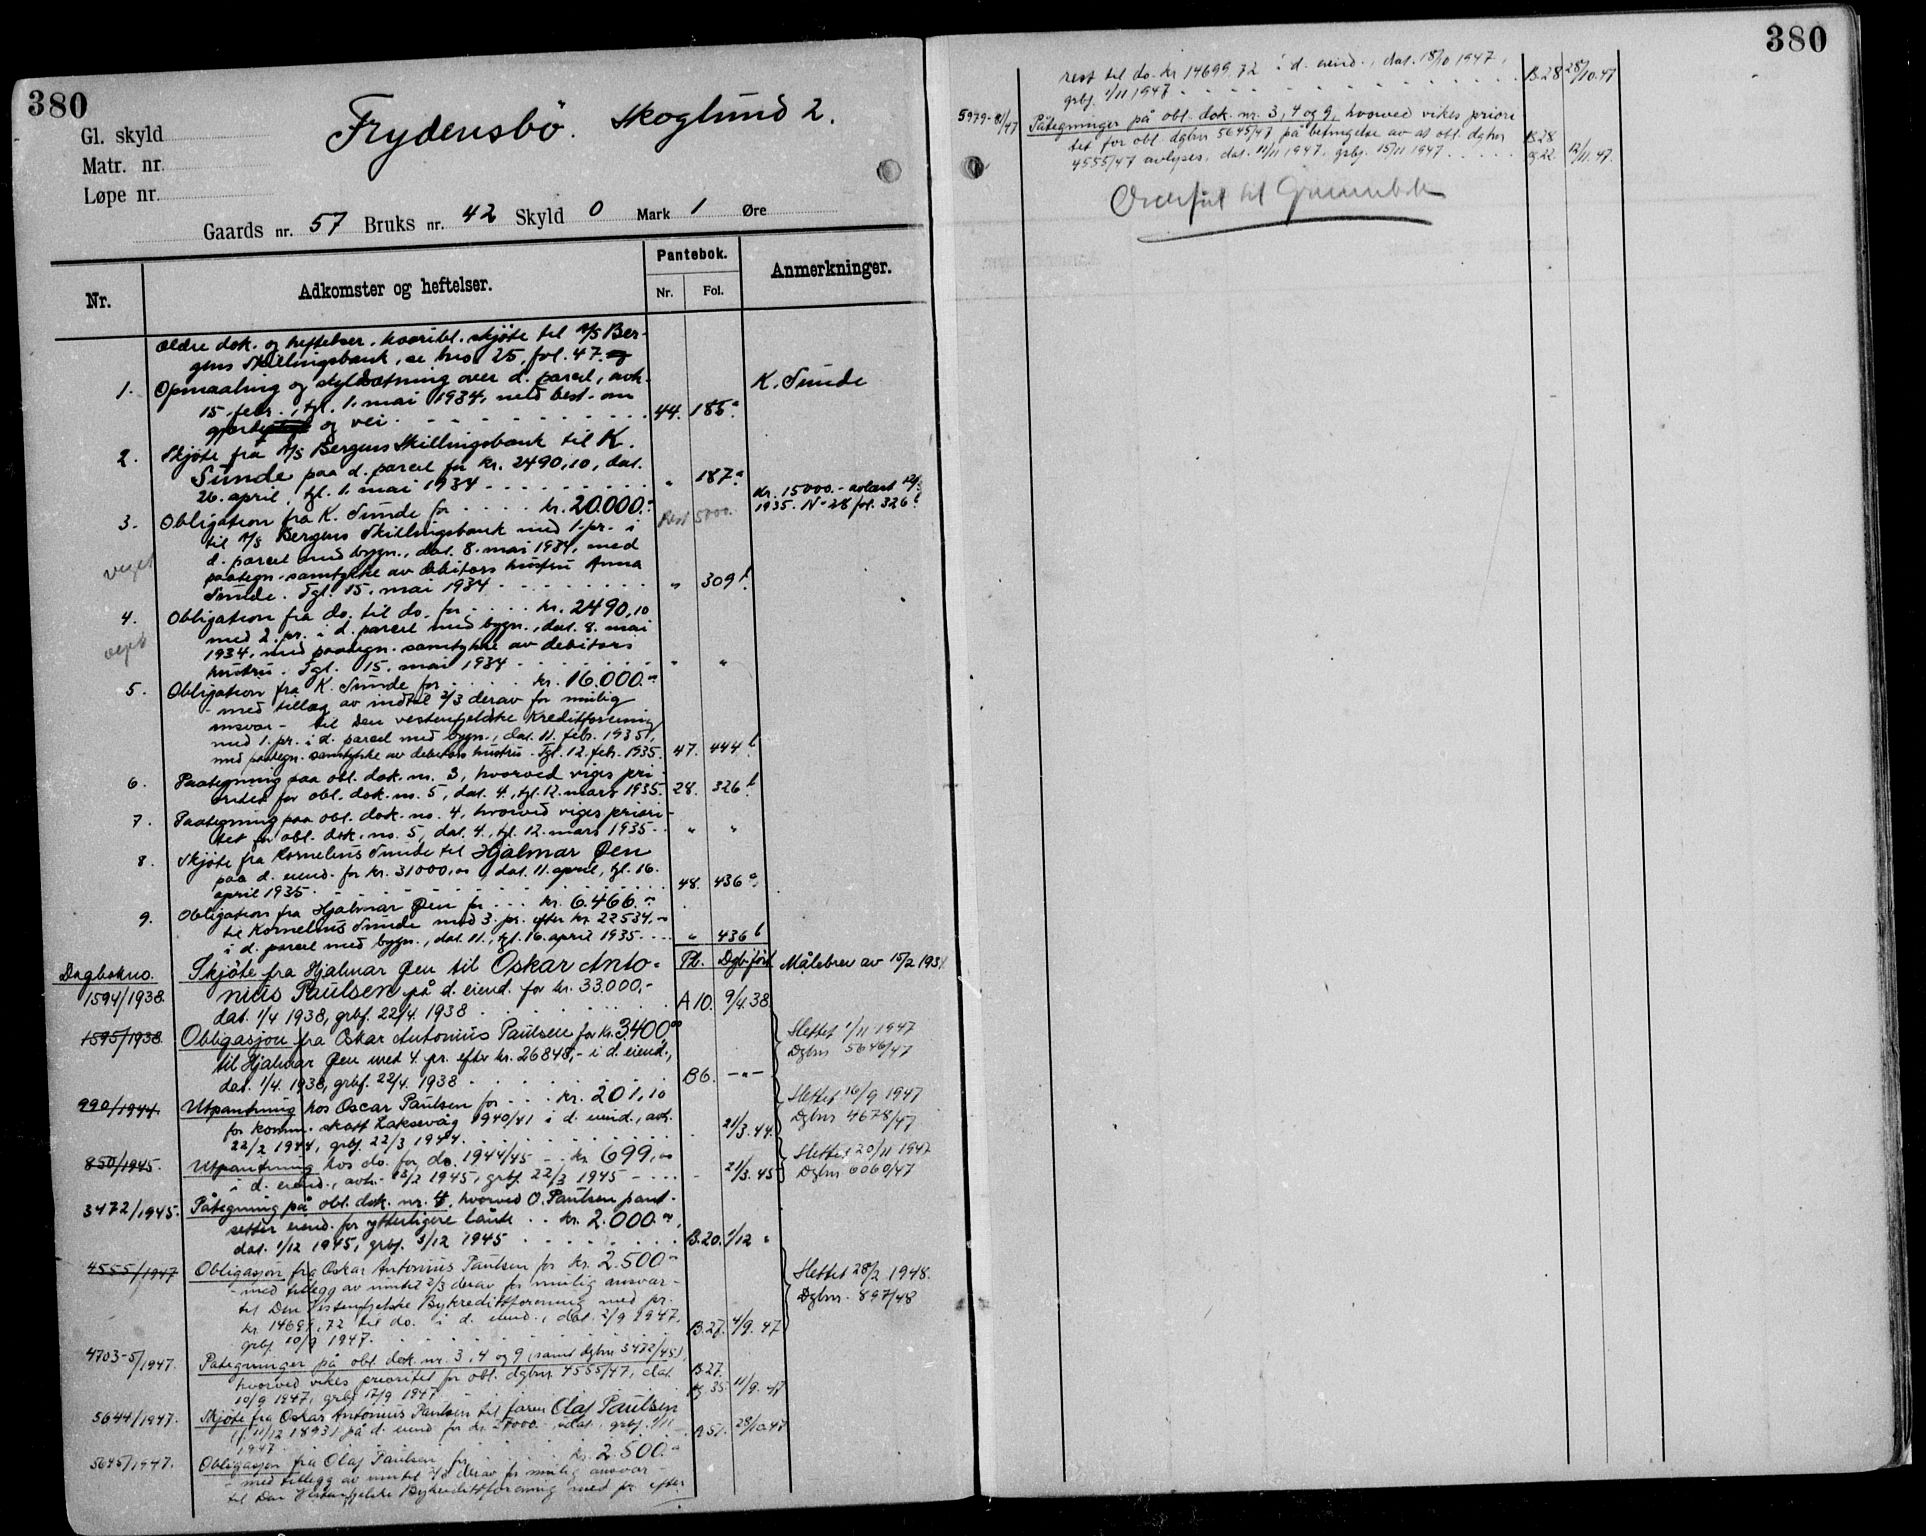 380
Gl. skyld
Matr. nr.
Løpe nr.
Frydensbö. Skoglund 2.
Gaards nr. 57 Bruks nr. 42 Skyld 0 Mark 1 Øre
Nr.
Adkomster og heftelser.
Pantebok.
Nr. Fol.
Anmerkninger.
ældre dok. og heftelser, hvoribl. skjöte til A/S Ber-
gens Skillingsbank, se bro 25, fol. 47.
1. Opmaaling og skyldsætning over d. parcel, avh.
15. febr., tgl. 1. mai 1934, med best. om
gjerde og vei 44. 185a
K. Sunde
2. Skjöte fra A/S Bergens Skillingsbank til K.
Sunde paa d. parcel for kr. 2490,10, dat.
26. april, tgl. 1. mai 1934 " 187a
3. Obligation fra K. Sunde for kr. 20.000.- Rest 5000.
Kr. 15000.- avlæst 12/3
1935. N- 28 fol. 326b
til A/S Bergens Skillingsbank med 1. pr. i
d. parcel med bygn., dat. 8. mai 1934, med
paategn. samtykke av debitors hustru Anna
Sunde. Tgl. 15. mai 1934 " 309b
veget
4. Obligation fra do. til do. for kr. 2490,10
med 2. pr. i d. parcel med bygn., dat. 8. mai
1934, med paategn. samtykke av debitors
hustru. Tgl. 15. mai 1934 " "
veget
5. Obligation fra K. Sunde for kr. 16.000.-
- med tillæg av indtil 2/3 derav for mulig
ansvar - til Den vestenfjeldske Kreditforening
med 1. pr. i d. parcel med bygn., dat. 11. febr. 1935,
med paategn. samtykke av debitors hustru. Tgl. 12. feb. 1935. 47. 444b
6. Paategning paa obl. dok. nr. 3, hvorved viges pri-
oritet for obl. dok. no. 5, dat. 4., tgl. 12. mars 1935. 28. 326b
7. Paategning paa obl. dok. no. 4, hvorved viges priori-
tet for obl. dok. no. 5, dat. 4., tgl. 12. mars 1935 " "
8. Skjöte fra Kornelius Sunde til Hjalmar Øen
paa d. eiend. for kr. 31000,00, dat. 11. april, tgl. 16.
april 1935 48. 436a
9. Obligation fra Hjalmar Øen for kr. 6.466.-
til Kornelius Sunde med 3. pr. efter kr. 22534.-
i d. parcel med bygn., dat. 11., tgl. 16. april 1935 " 436b
Dagbokno. Pb. Dgb.förd
1594/1938. Skjöte fra Hjalmar Øen til Oskar Anto-
nius Paulsen på d. eiend. for kr. 33.000,-
dat. 1/4 1938, grbf. 22/4. 1938 A 10. 9/4.38
Målebrev av 15/2 193
1595/1938 Obligasjon fra Oskar Antonius Paulsen for kr. 3400,00
til Hjalmar Øen med 4. pr. efter kr. 26848,- i d. eiend.,
dat. 1/4. 1938, grbf. 22/4. 1938 B 6. -"-
Slettet 1/11 1947
Dgbnr 5646/47
990/1944. Utpantning hos Oscar Paulsen for kr. 201,10
for komm. skatt Laksevåg 1940/41 i d. eiend., avh.
22/2 1944, grbf. 22/3 1944. 21/3.44.
Slettet 16/9 1947
Dgbnr 4678/47
850/1945. Utpantning hos do. for do. 1944/45 - kr. 699,00
i d. eiend., avh. 13/2 1945, grbf 22/3 1945 21/3.45
Slettet 20/11 1947
Dgbnr 6060/47
3472/1945. Påtegning på obl. dok. nr. 4, hvorved O. Paulsen pant-
setter eiend. for ytterligere lånte kr. 2.000.00,
dat. 1/12 1945, grbf. 3/12 1945 B.20. 1/12 "
4555/1947 Obligasjon fra Oskar Antonius Paulsen for kr. 2.500.-
- med tillegg av inntil 2/3 derav for mulig ansvar -
til Den Vestenfjelske Bykredittforening med pr.
kr. 14699,72 til do. i d. eiend., dat. 2/9 1947,
grbf 10/9 1947. B.27. 4/9.47
Slettet 28/2 1948.
Dgbnr. 897/48
4703-5/1947. Påtegninger på obl. dok. nr. 3, 4 og 9 (samt dgbnr 3472/45),
hvorved vikes prioritet for obl. dgbnr 4555/47, dat.
10/9 1947, grbf 17/9 1947 B.27. og 35. 11/9.47
5644/1947. Skjöte fra Oskar Antonius Paulsen til faren Olaf Paulsen
(f. 11/12 1893) på d. eiend for kr. 27000.- grbf. 1/11
1947. A 51. 28/10.47
5645/1947. Obligasjon fra Olaf Paulsen for kr. 2.500.-
- med tillegg av inntil 2/3 derav for mulig ansvar -
til Den Vestenfjelske Bykredittforening med pr. efter
380
rest til do. kr 14699,72 i d. eiend., dat. 18/10 1947,
grbf. 1/11 1947 B.28 28/10.47
5979-81/47 Påtegninger på obl. dok. nr. 3, 4 og 9, hvorved vikes priori
tet for obl. dgbnr 5645/47 på betingelse av at obl. dgbnr
4555/47 avlyses, dat. 11/11 1947, grbf. 15/11 1947 B.28 og 22. 12/11.47.
Overført til